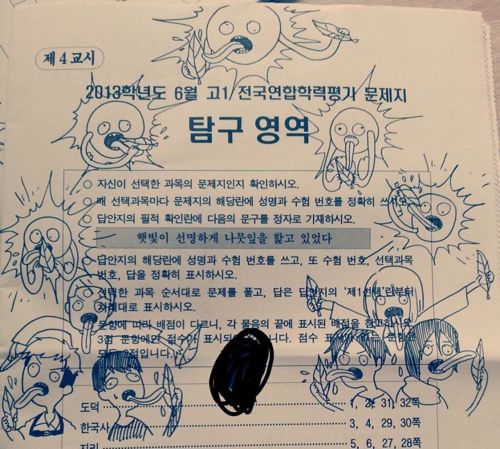 제 4 교시
2013학년도 6월 고1 전국연합학력평가 문제지
탐구 영역
○ 자신이 선택한 과목의 문제지인지 확인하시오.
○ 매 선택과목마다 문제지의 해당란에 성명과 수험 번호를 정확히 쓰시오.
○ 답안지의 필적 확인란에 다음의 문구를 정자로 기재하시오.
햇빛이 선명하게 나뭇잎을 핥고 있었다
○ 답안지의 해당란에 성명과 수험 번호를 쓰고, 또 수험 번호, 선택과목
번호, 답을 정확히 표시하시오.
선택한 과목 순서대로 문제를 풀고, 답은 답안지의 '제1선택'란부터
차례대로 표시하시오.
문항에 따라 배점이 다르니, 각 물음의 끝에 표시된 배점을 참고하시오.
3점 문항에만 점수가 표시되 니다. 점수 표시가 없는 문항은
2점입니다.
도덕 1, 2, 31, 32쪽
한국사 3, 4, 29, 30쪽
지리 5, 6, 27, 28쪽